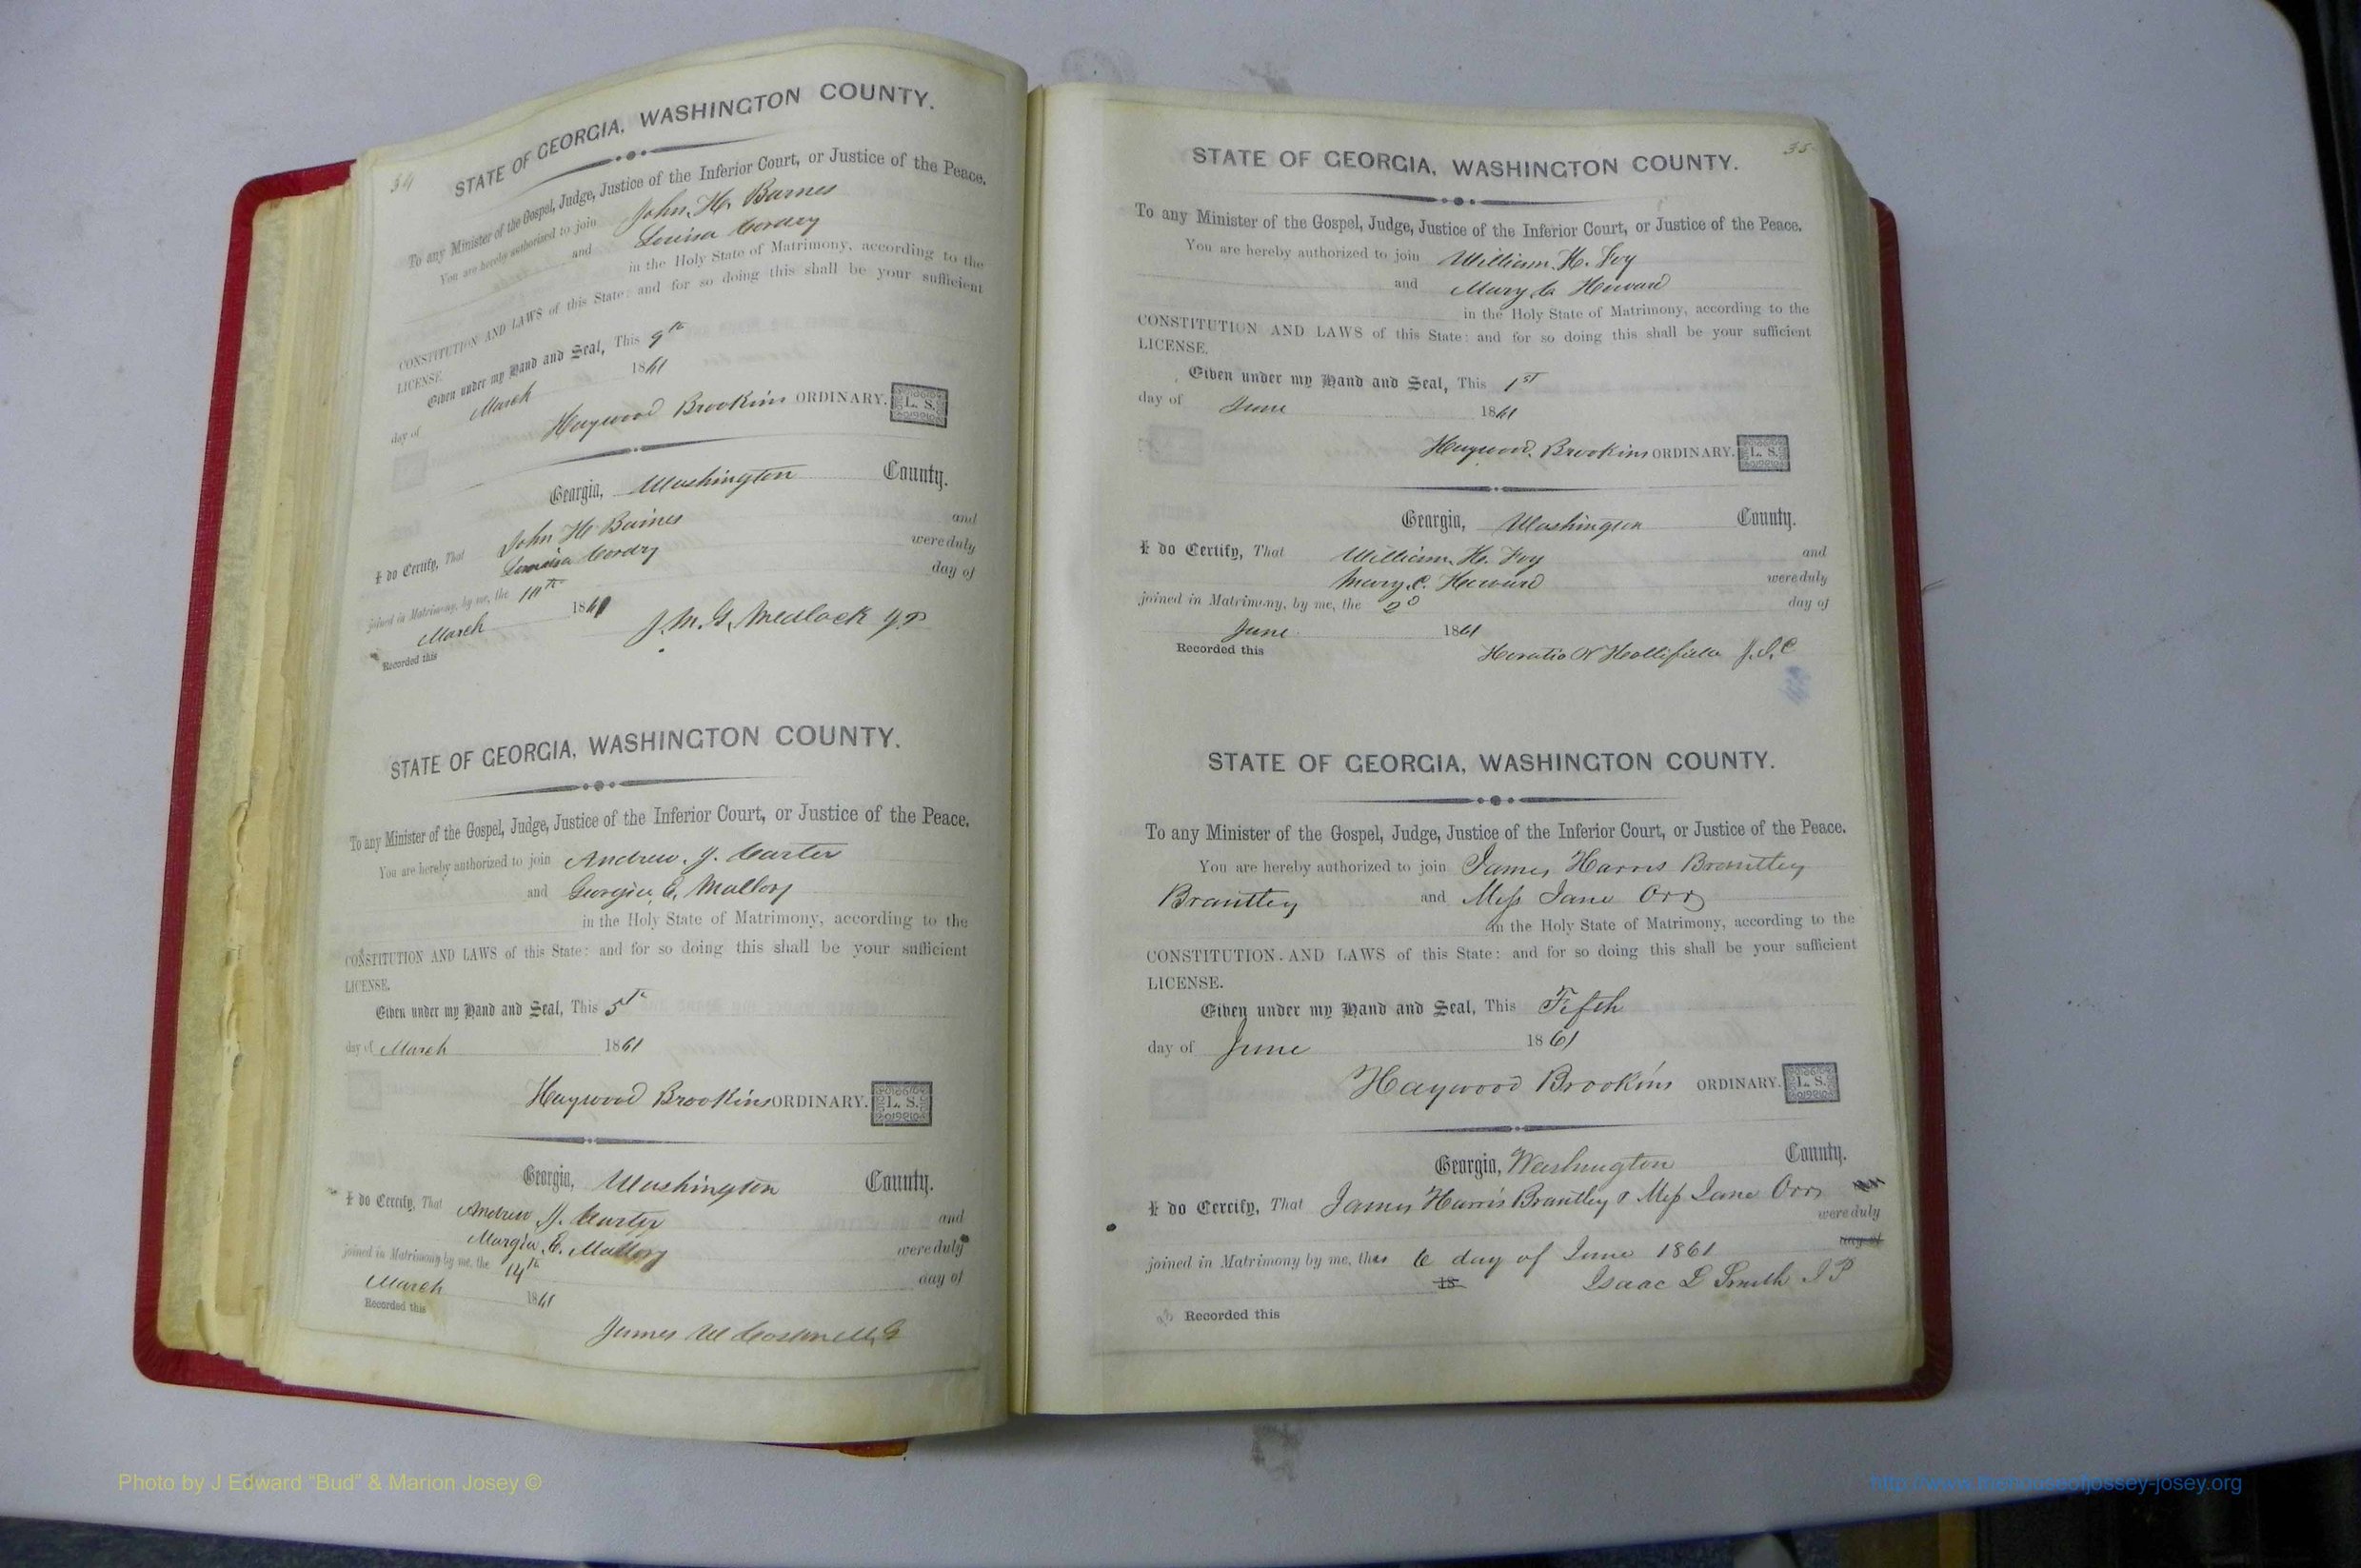 34
STATE OF GEORGIA, WASHINGTON COUNTY.
To any Minister of the Gospel, Judge, Justice of the Inferior Court, or Justice of the Peace.
You are hereby authorized to join John. H. Barnes
and Louisa Cordry
in the Holy State of Matrimony, according to the
CONSTITUTION AND LAWS of this State: and for so doing this shall be your sufficient
LICENSE.
Given under my Hand and Seal, This 9th
day of March 1861
Haywood Brookins ORDINARY. L. S.
Georgia, Washington County.
I do Certify, That John H Barnes and
Louisa Cordry were duly
joined in Matrimony, by me, the 10th day of
March 1861
J. M. G. Medlock JP
Recorded this
STATE OF GEORGIA, WASHINGTON COUNTY.
To any Minister of the Gospel, Judge, Justice of the Inferior Court, or Justice of the Peace.
You are hereby authorized to join Andrew. J. Carter
and Georgia, E, Mallory
in the Holy State of Matrimony, according to the
CONSTITUTION AND LAWS of this State: and for so doing this shall be your sufficient
LICENSE.
Given under my Hand and Seal, This 5th
day of March 1861
Haywood Brookins ORDINARY. L. S.
Georgia, Washington County.
I do Certify, That Andrew J. Carter and
E. Mallory were duly
joined in Matrimony by me, the 14th day of
March 1861
Recorded this
James W
35
STATE OF GEORGIA, WASHINGTON COUNTY.
To any Minister of the Gospel, Judge, Justice of the Inferior Court, or Justice of the Peace.
You are hereby authorized to join William. H. Foy
and Mary C. Howard
in the Holy State of Matrimony, according to the
CONSTITUTION AND LAWS of this State: and for so doing this shall be your sufficient
LICENSE.
Given under my Hand and Seal, This 1st
day of June 1861
Haywood. Brookins ORDINARY. L. S.
Georgia, Washington County.
I do Certify, That William. H. Foy and
Mary. C. Howard were duly
joined in Matrimony, by me, the 2d day of
June 1861
Recorded this Horatio N Hollifield J. I. C
STATE OF GEORGIA, WASHINGTON COUNTY.
To any Minister of the Gospel, Judge, Justice of the Inferior Court, or Justice of the Peace.
You are hereby authorized to join James Harris Brantley
Brantley and Miss Jane Orr
in the Holy State of Matrimony, according to the
CONSTITUTION AND LAWS of this State: and for so doing this shall be your sufficient
LICENSE.
Given under my Hand and Seal, This Fifth
day of June 1861
Haywood Brookins ORDINARY. L. S.
Georgia, Washington County.
I do Certify, That James Harris Brantley & Miss Jane Orr
were duly
joined in Matrimony by me, this 6 day of June 1861 day of
18 Isaac L Smith J P
Recorded this
Photo by J Edward “Bud” & Marion Josey ©
http://www.thehouseofjossey-josey.org